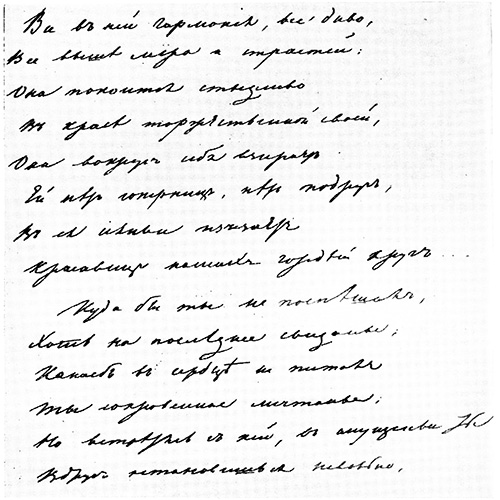 Все въ ней гармонія, все диво,
Все выше міра и страстей:
Она покоится стыдливо
Въ красѣ торжественной своей;
Она вокругъ себя взираетъ
Ей нѣтъ соперницъ, нѣтъ подругъ,
Въ ея сіяньи изчезаетъ
Красавицъ нашихъ гордый кругъ ....
Куда бы ты не поспѣшалъ,
Хоть на послѣднее свиданье;
Какое бъ въ сердцѣ не питалъ
Ты сокровенное мечтанье;
Но встрѣтясь съ ней, въ смущеньи ты
Вдругъ остановишься невольно,